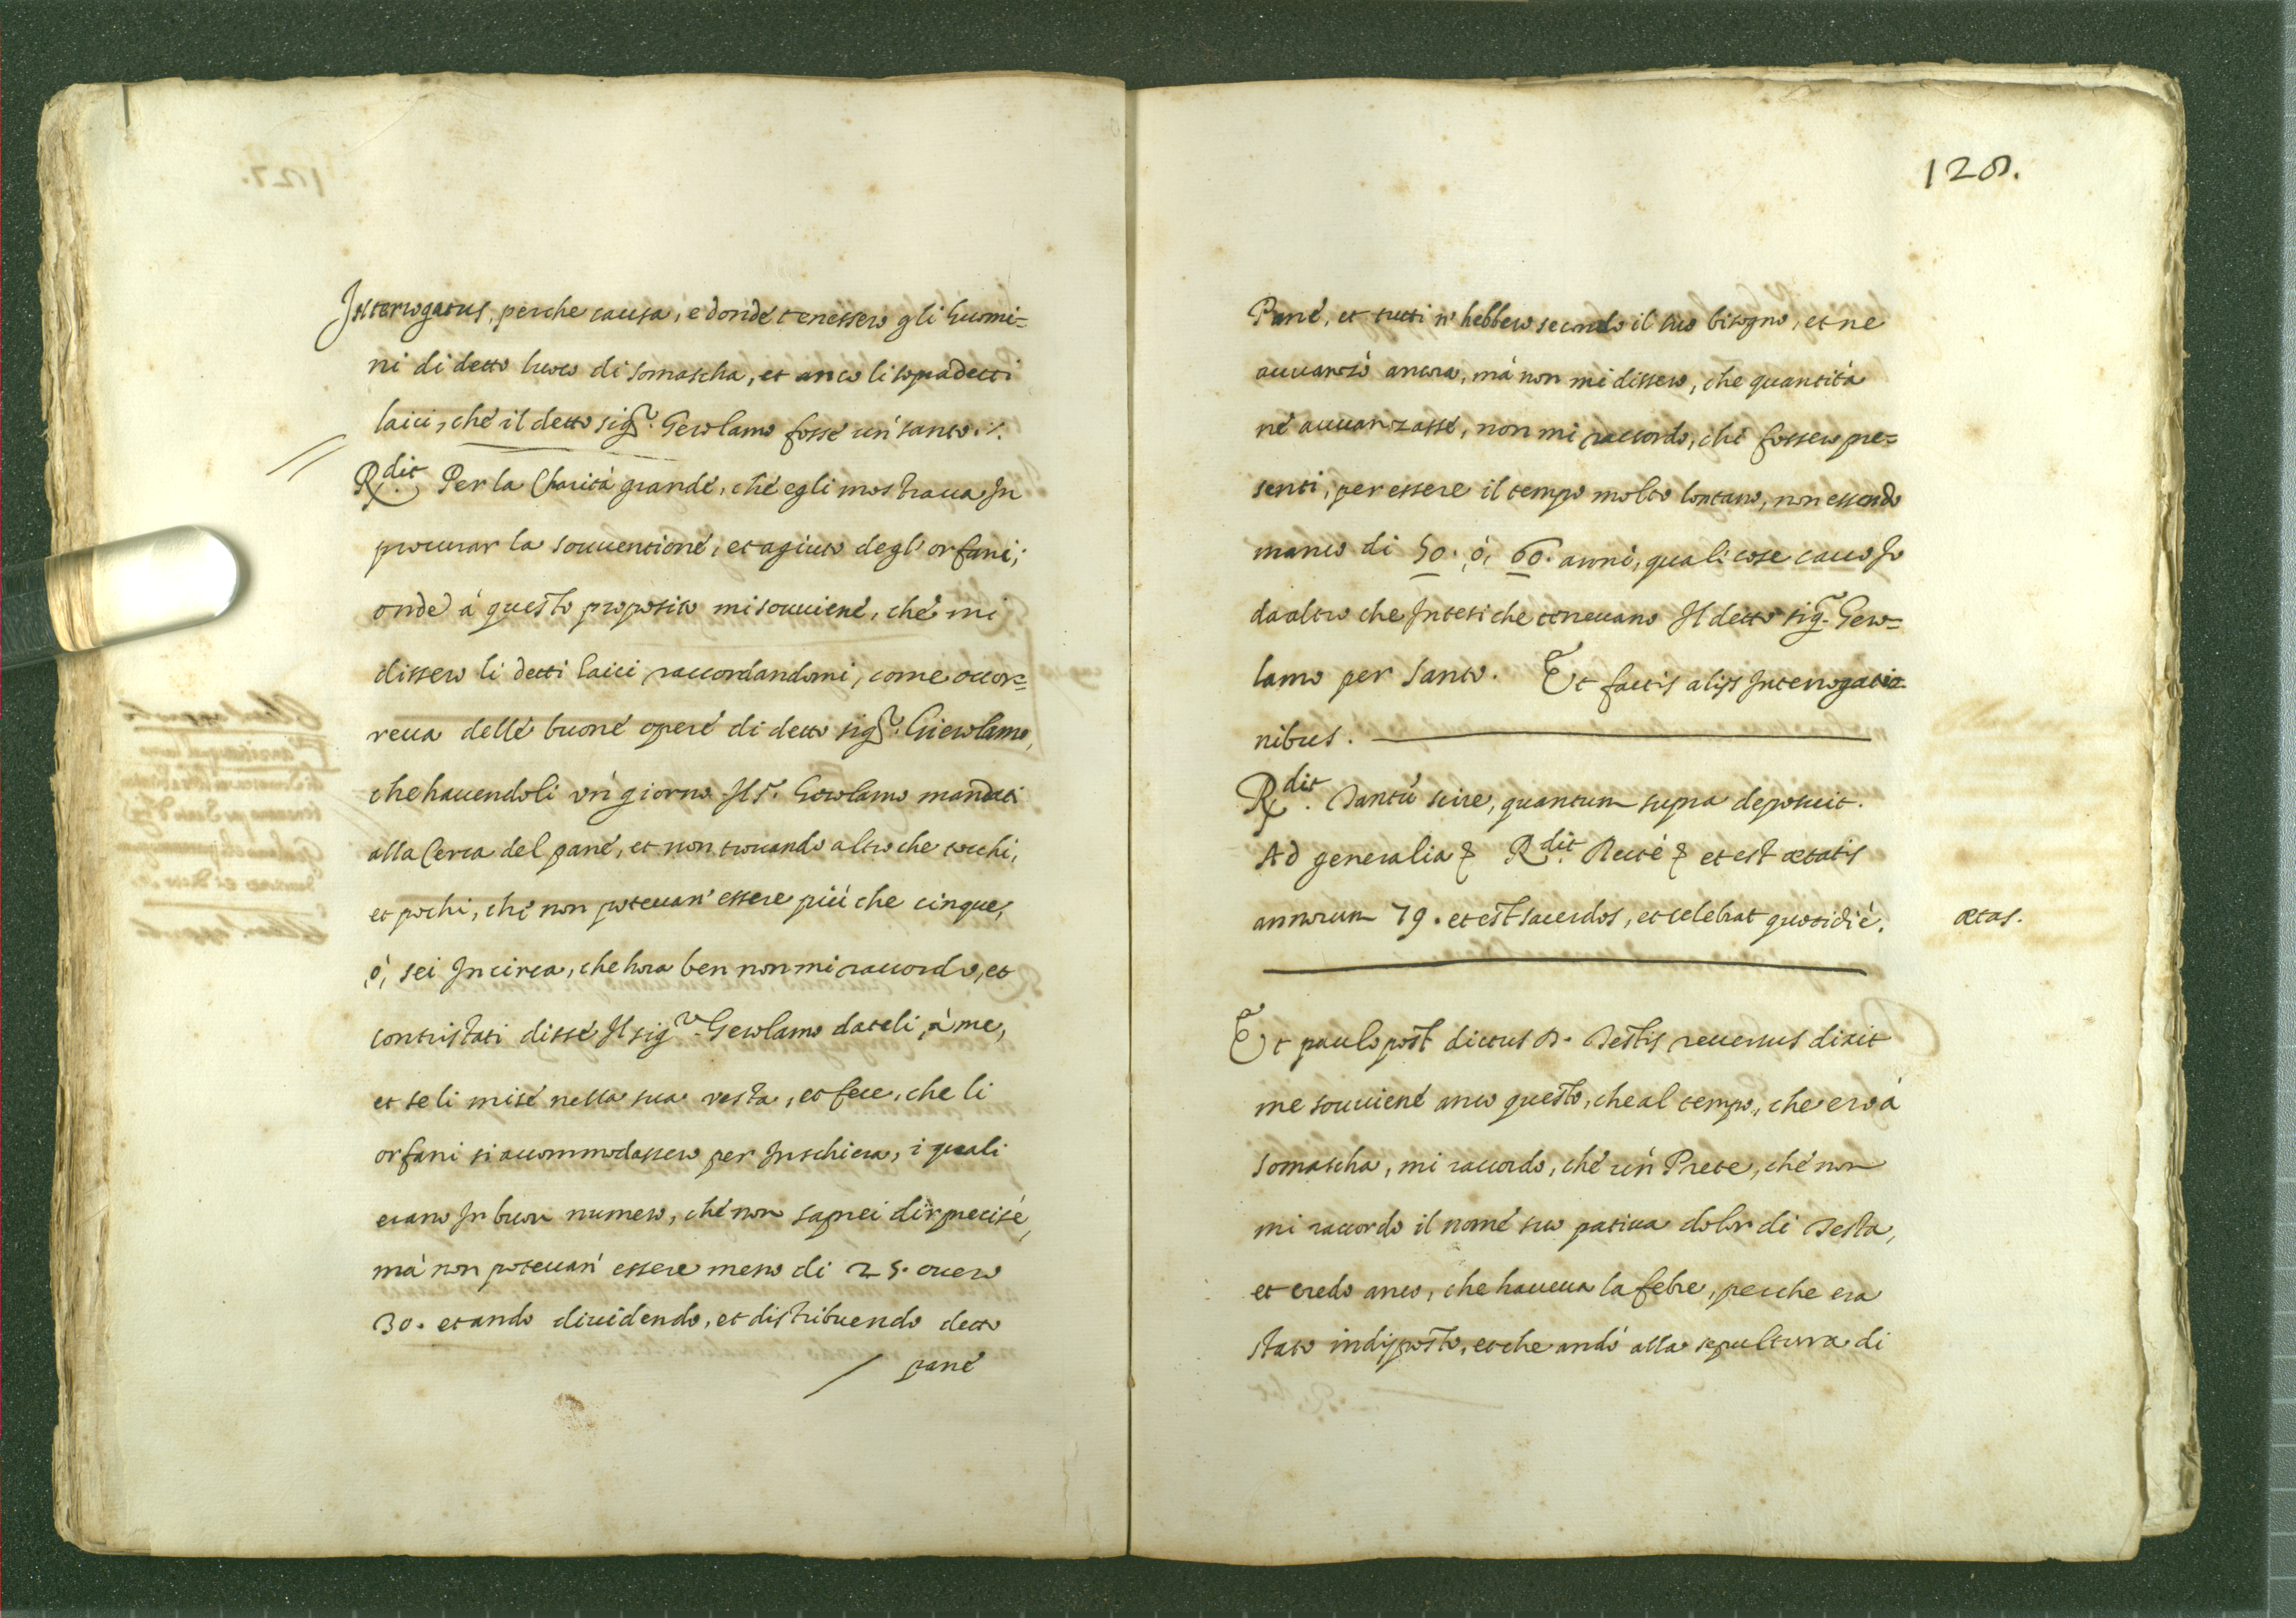 Interrogatus, perche causa, e donde tenessero gli huomi=
ni di detto luoco di Somascha, et anco li sopradetti
laici, che il detto sig.r Gerolamo fosse un santo ./.
R.dit Per la Charità grande, che egli mostraua In
procurar la souuentione, et agiuto degl'orfani;
onde à questo proposito mi souuiene, che mi
dissero li detti laici raccordandomi, come occor=
reua delle buone opere di detto sig.r Gierolamo,
che hauendoli un giorno Il S.r Gerolamo mandati
alla Cerca del pane, et non trouando altro che tocchi,
et pochi, che non poteuan' essere più che cinque,
ò, sei In circa, che hora ben non mi raccordo, et
contristati disse Il sig.r Gerolamo dateli, à me,
et se li mise nella sua vesta, et fece, che li
orfani si accommodassero per In schiera, i quali
erano In buon numero, che non saprei dir precise,
mà non poteuan' essere meno di 25. ouero
30. et ando diuidendo, et distribuendo detto
pane
128.
Pane, et tutti n' hebbero secondo il suo bisogno, et ne
auuanzò ancora, mà non mi dissero, che quantità
ne auuanzasse, non mi raccordo, chi fossero pre=
senti, per essere il tempo molto lontano, non essendo
manco di 50. ò, 60. anni, quali cose cauo Io
da altro che Intesi che teneuano Il detto sig.r Gero=
lamo per santo. Et factis alijs Interrogatio
nibus.
R.dit. Tantù scire, quantum supra deposuit.
Ad generalia & R.dit Recté & et est ætatis
annorum 79. et est sacerdos, et celebrat quotidiè.
ætas.
Et paulo post dictus D. Testis reuersus dixit
me souuiene anco questo, che al tempo, che ero à
Somascha, mi raccordo, che un Prete, che non
mi raccordo il nome suo patiua dolor di Testa,
et credo anco, che haueua la febre, perche era
stato indisposto, et che andò alla sepultura di